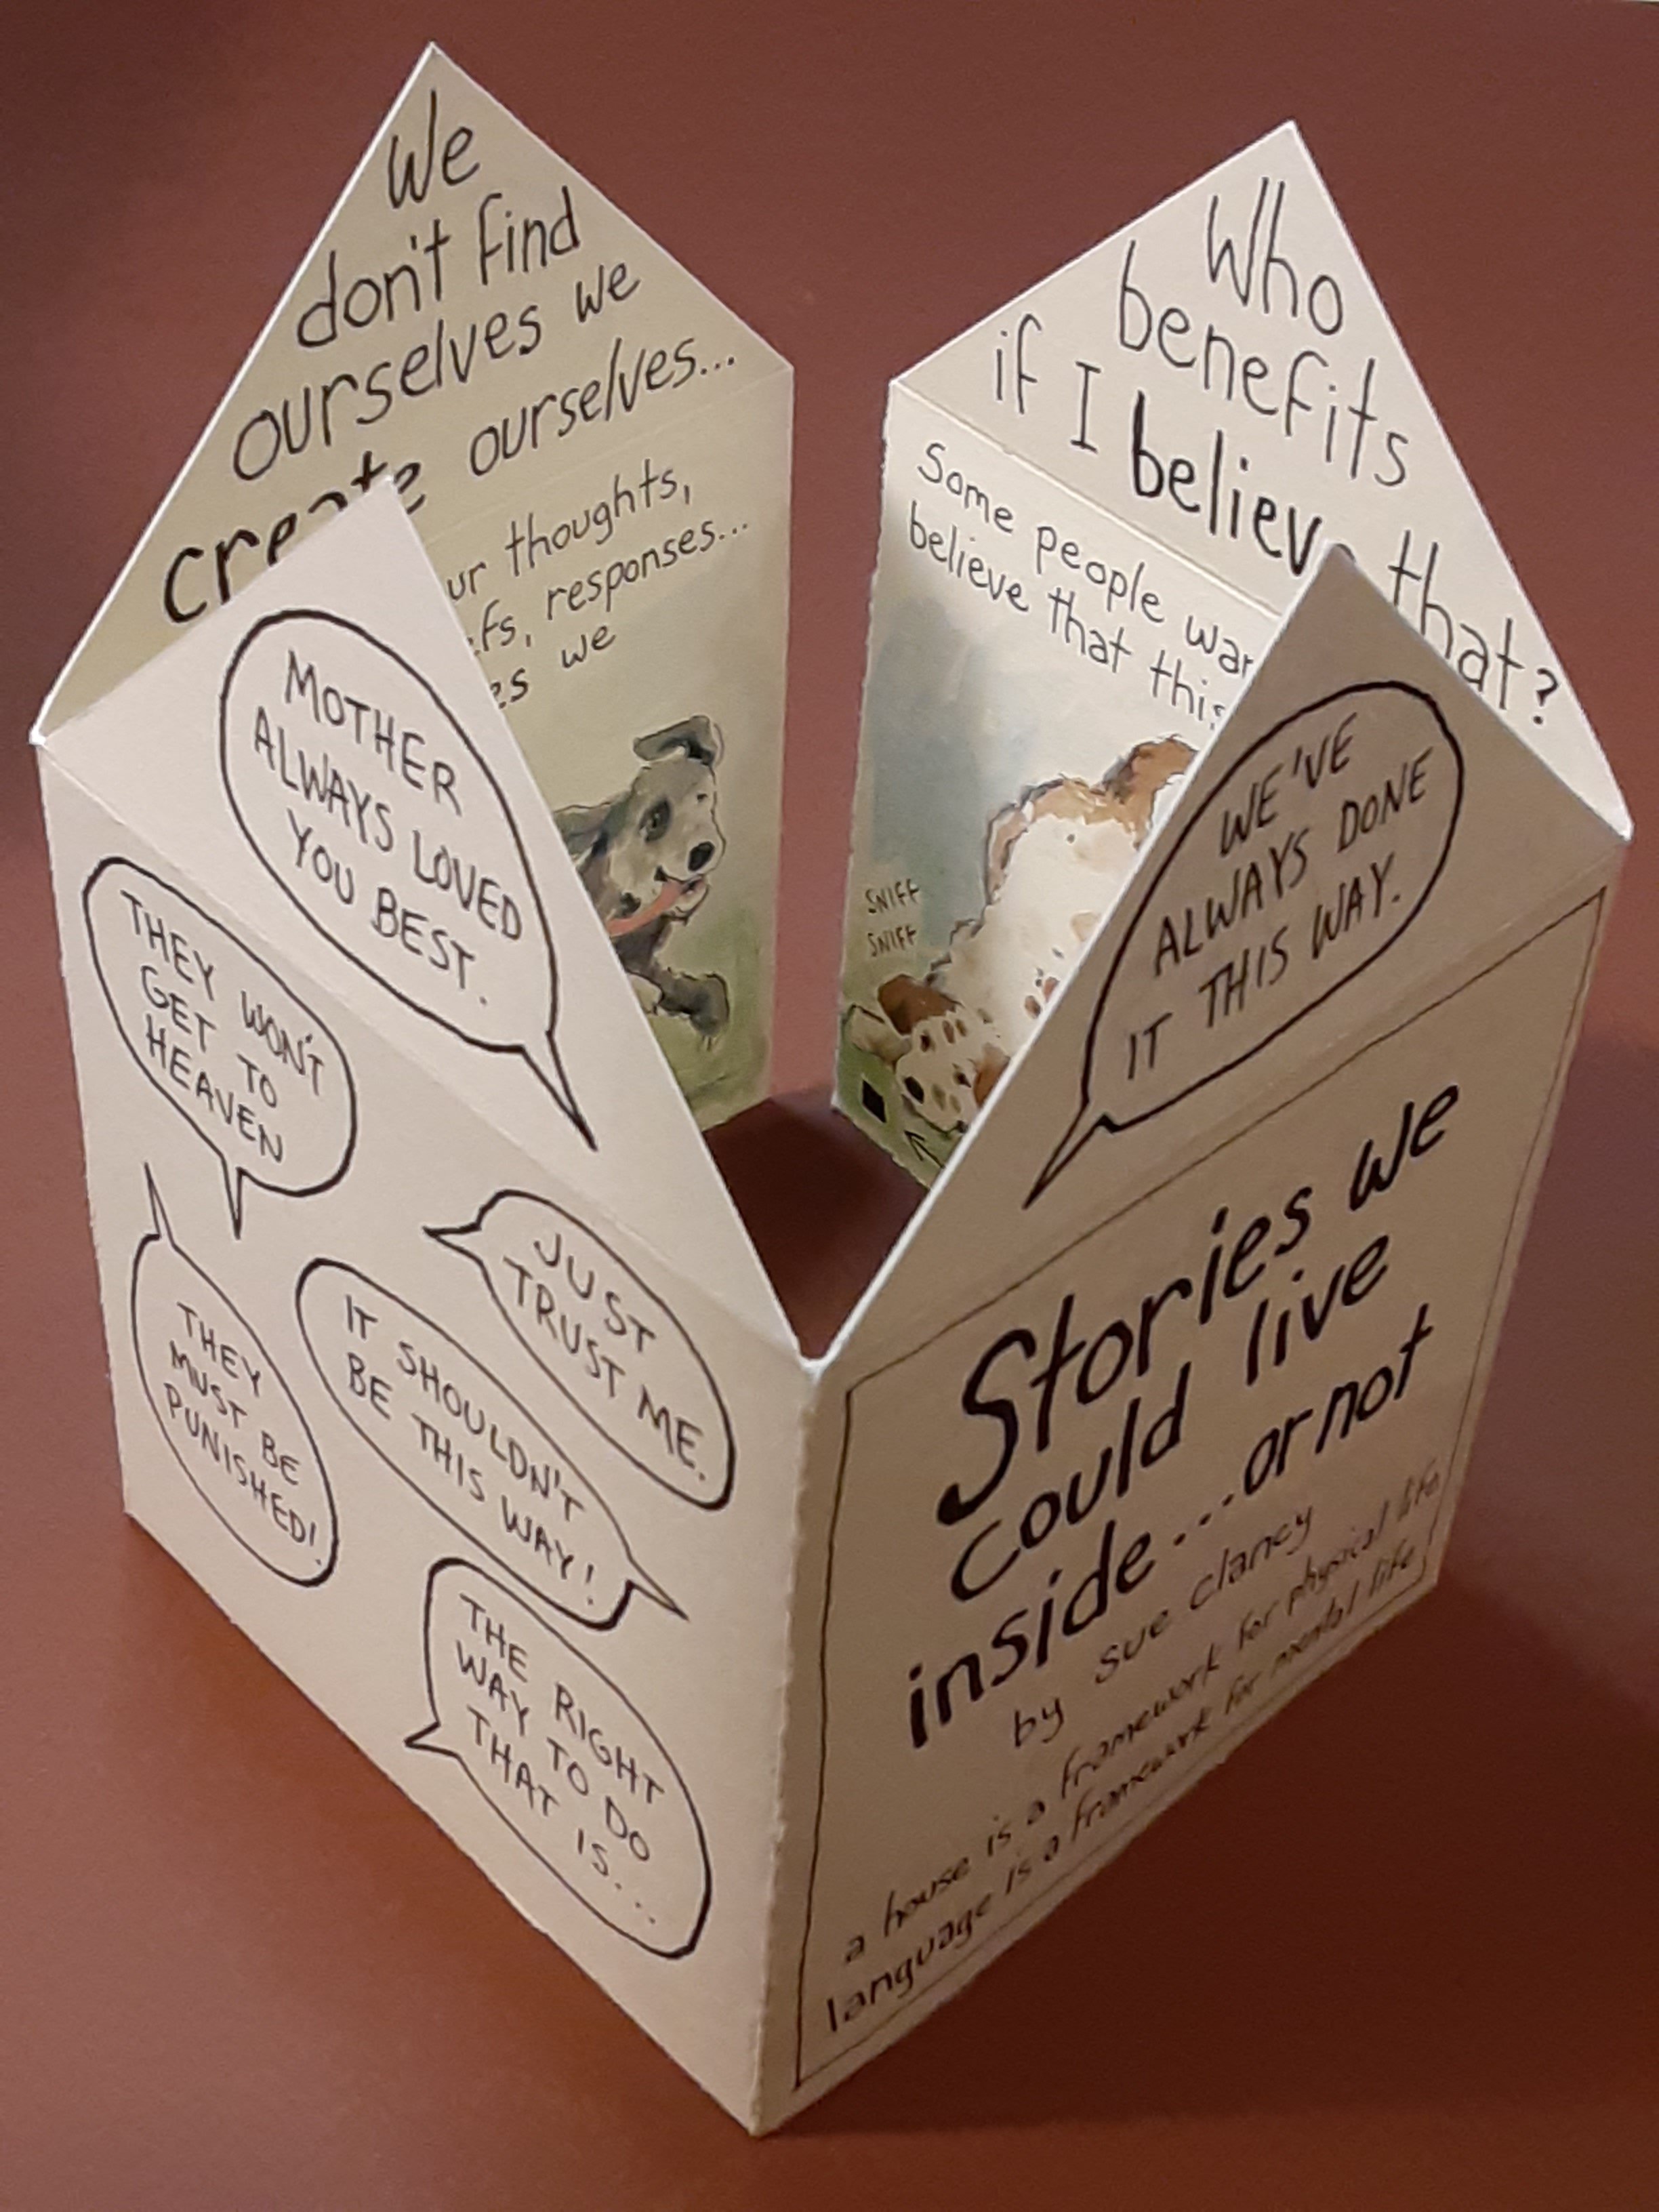 We
don't find
ourselves we
create ourselves...
thoughts,
responses...
we
Who
benefits
if I believe that?
Some people
believe that this
SNIFF
SNIFF
MOTHER
ALWAYS LOVED
YOU BEST.
THEY WON'T
GET TO
HEAVEN
JUST
TRUST ME.
THEY
MUST BE
PUNISHED!
IT SHOULDN'T
BE THIS WAY!
THE RIGHT
WAY TO DO
THAT IS...
WE'VE
ALWAYS DONE
IT THIS WAY.
Stories we
could live
inside...or not
by sue clancy
a house is a framework for physical life
language is a framework for mental life